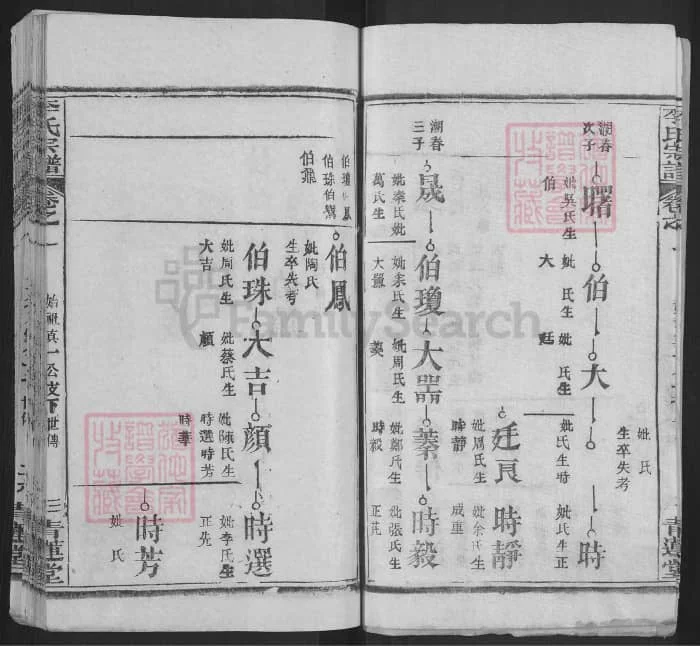 李氏宗譜
青蓮堂
湖春
次子
曙
妣吳氏生
伯
伯
妣 氏生
大
大
妣 氏生
廷
妣氏生時
時
妣氏生正
妣 氏
生卒失考
廷良
妣周氏生
時靜
時靜
妣余氏生
成重
湖春
三子
晟
妣秦氏妣
葛氏生
伯瓊
大器
妣周氏生
蓁
妣鄭氏生
時毅
時毅
妣張氏生
正芘
伯瓊 鳳
伯珠伯
伯
伯鳳
妣陶氏
生卒失考
伯珠
妣周氏生
大吉
大吉
妣蔡氏生
顏
顏
妣陳氏生
時選時芳
時華
時選
妣李氏生
正先
時芳
妣 氏
李氏宗譜
卷之一
始祖真一公支下 世傳
三
青蓮堂
FamilySearch